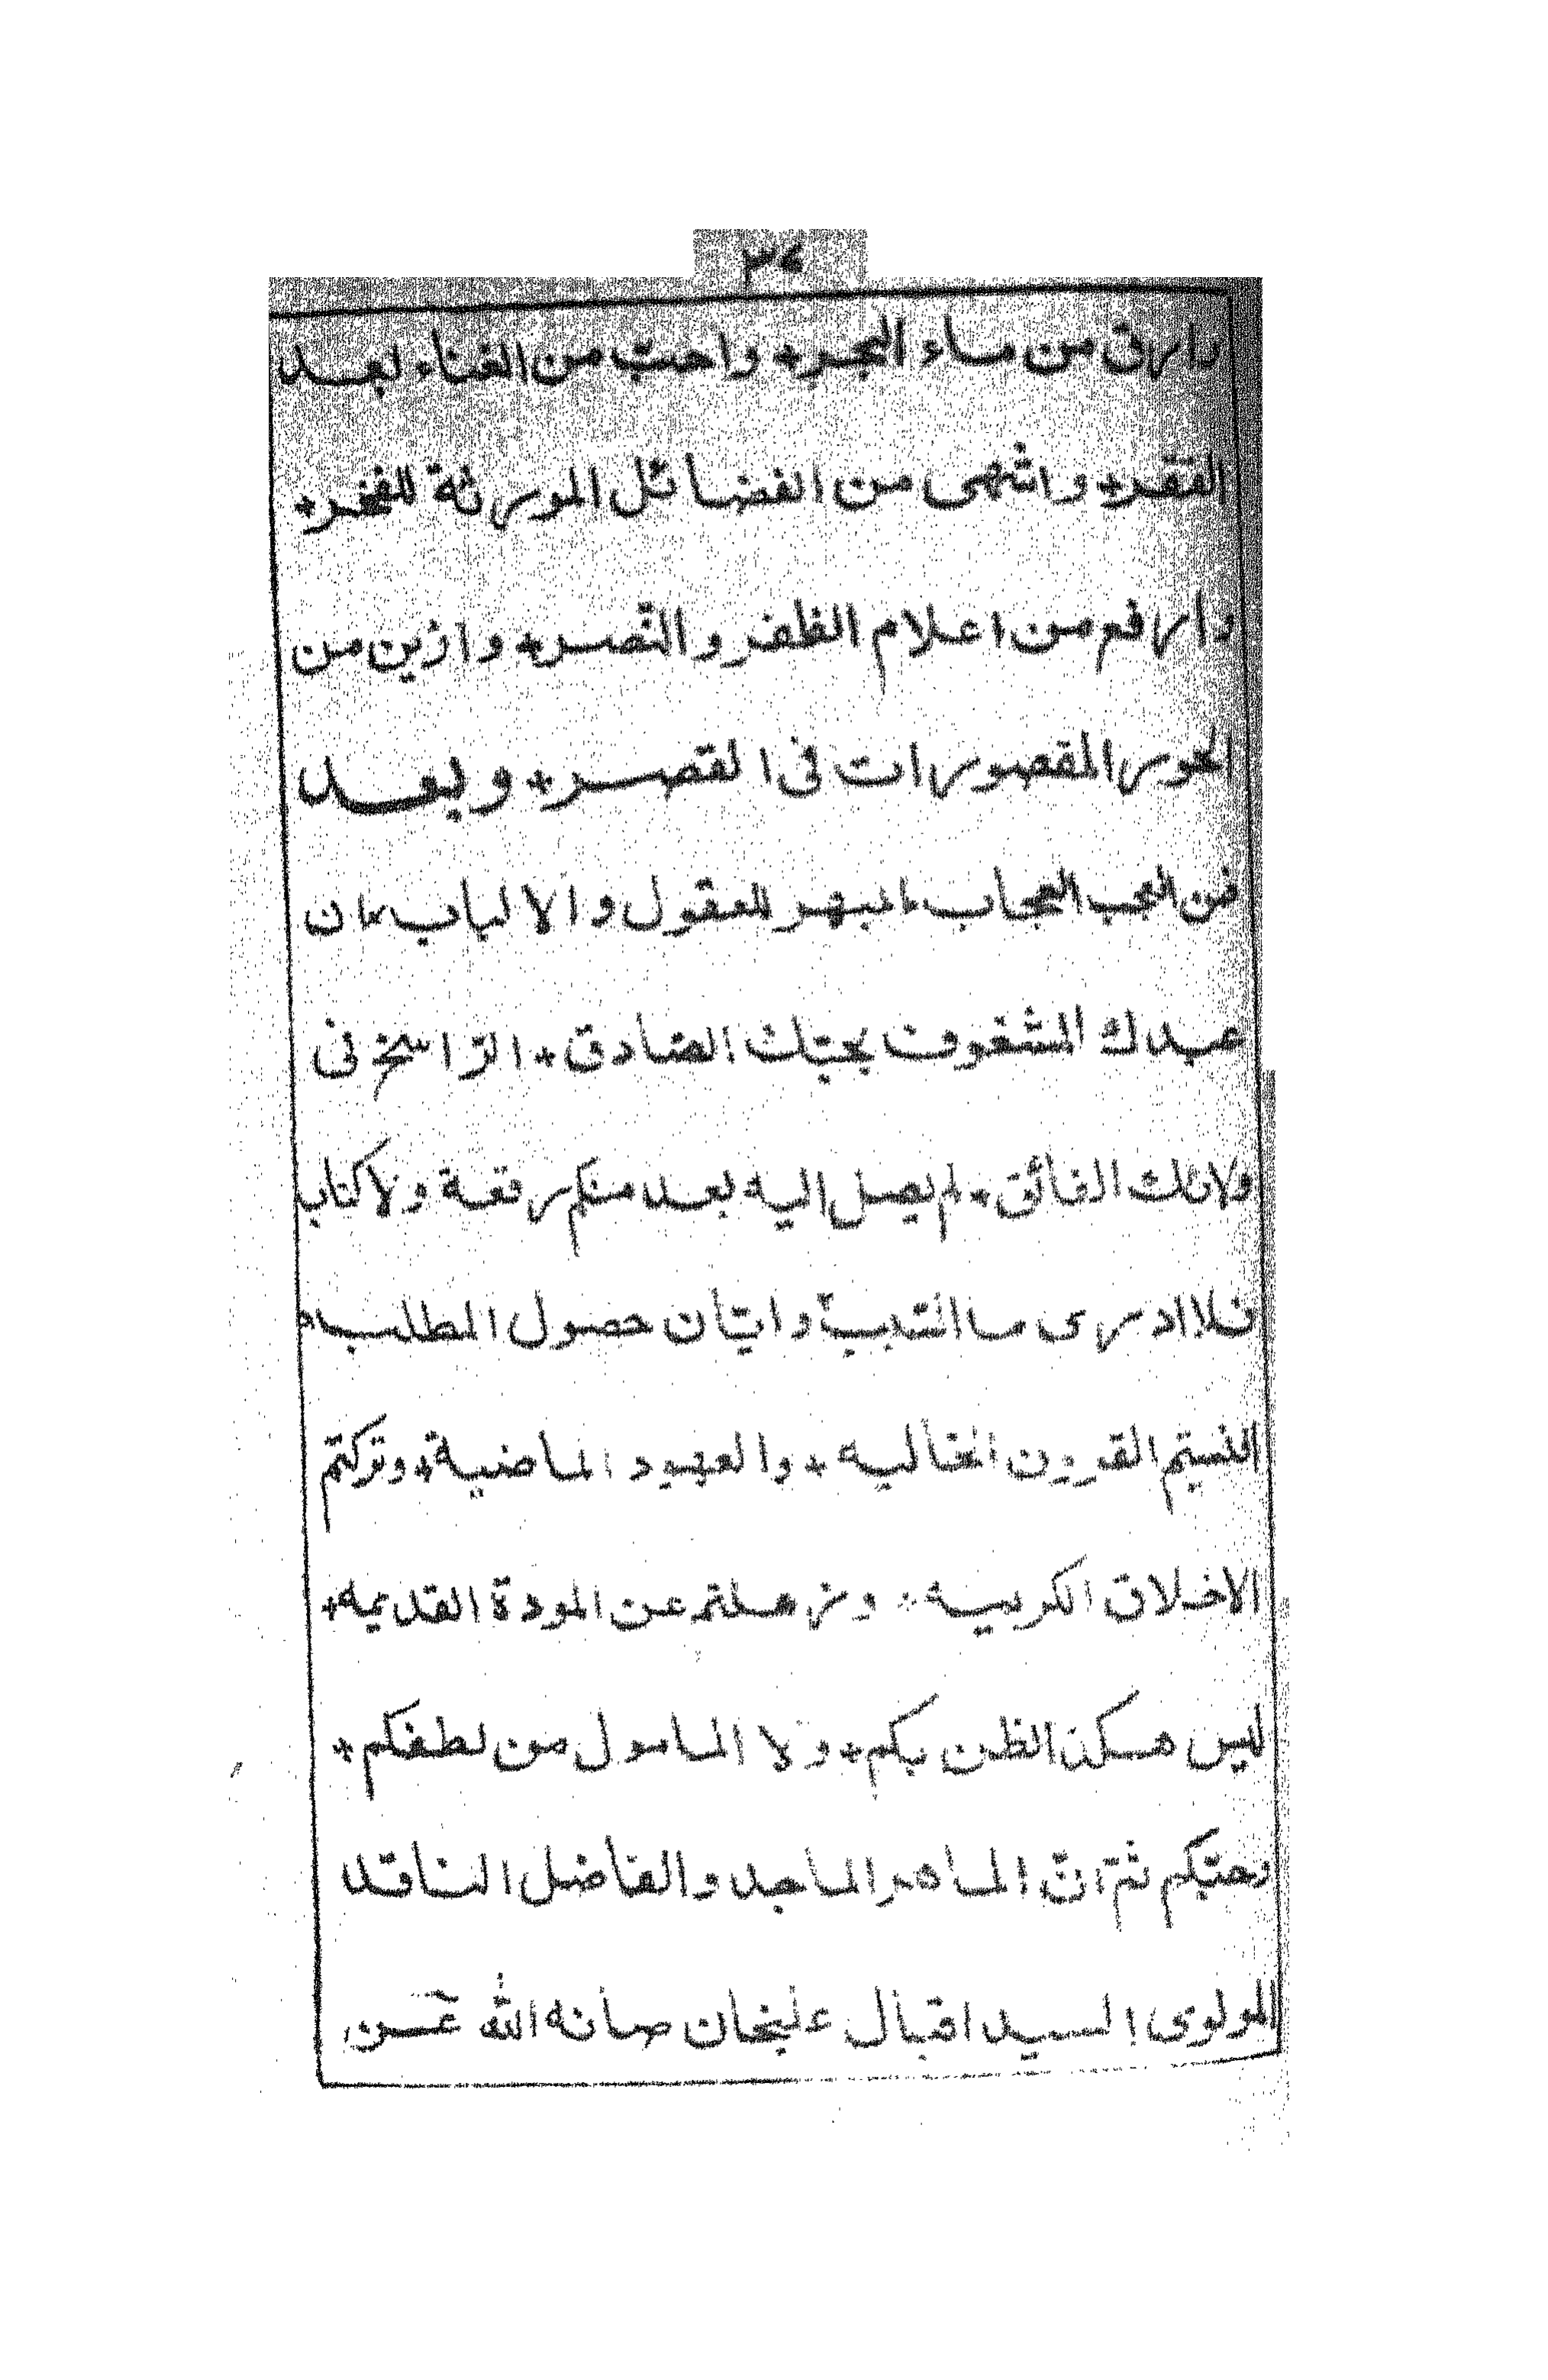 ٣٧
وارق من ماء البحر+ واحبّ من الغناء بعد
الفقر+ واشهى من الفضائل المورثة للفخر+
وارفع من اعلام الظفر والنّصر+ وازين من
الحور المقصورات فى القصر+ وبعد
فمن العجب العجاب+ المبهر للعقول والالباب+ ان
عبدك المشغوف بحبّك الصّادق+ الرّاسخ فى
ولائك الفائق+ لم يصل اليه بعد منكم رقعة ولا كتاب
فلا ادرى ما السّبب وايّان حصول المطلب+
انسيتم القرون الخاليه+ والعهود الماضية+ وتركتم
الاخلاق الكريمه+ وزهلتم عن المودة القديمه+
ليس هكذا الظن بكم+ ولا المامول من لطفكم+
وحبّكم ثمّ انّ الماهر الماجد والفاضل الناقد
المولوى السيد اقبال عليخان صانه الله عن